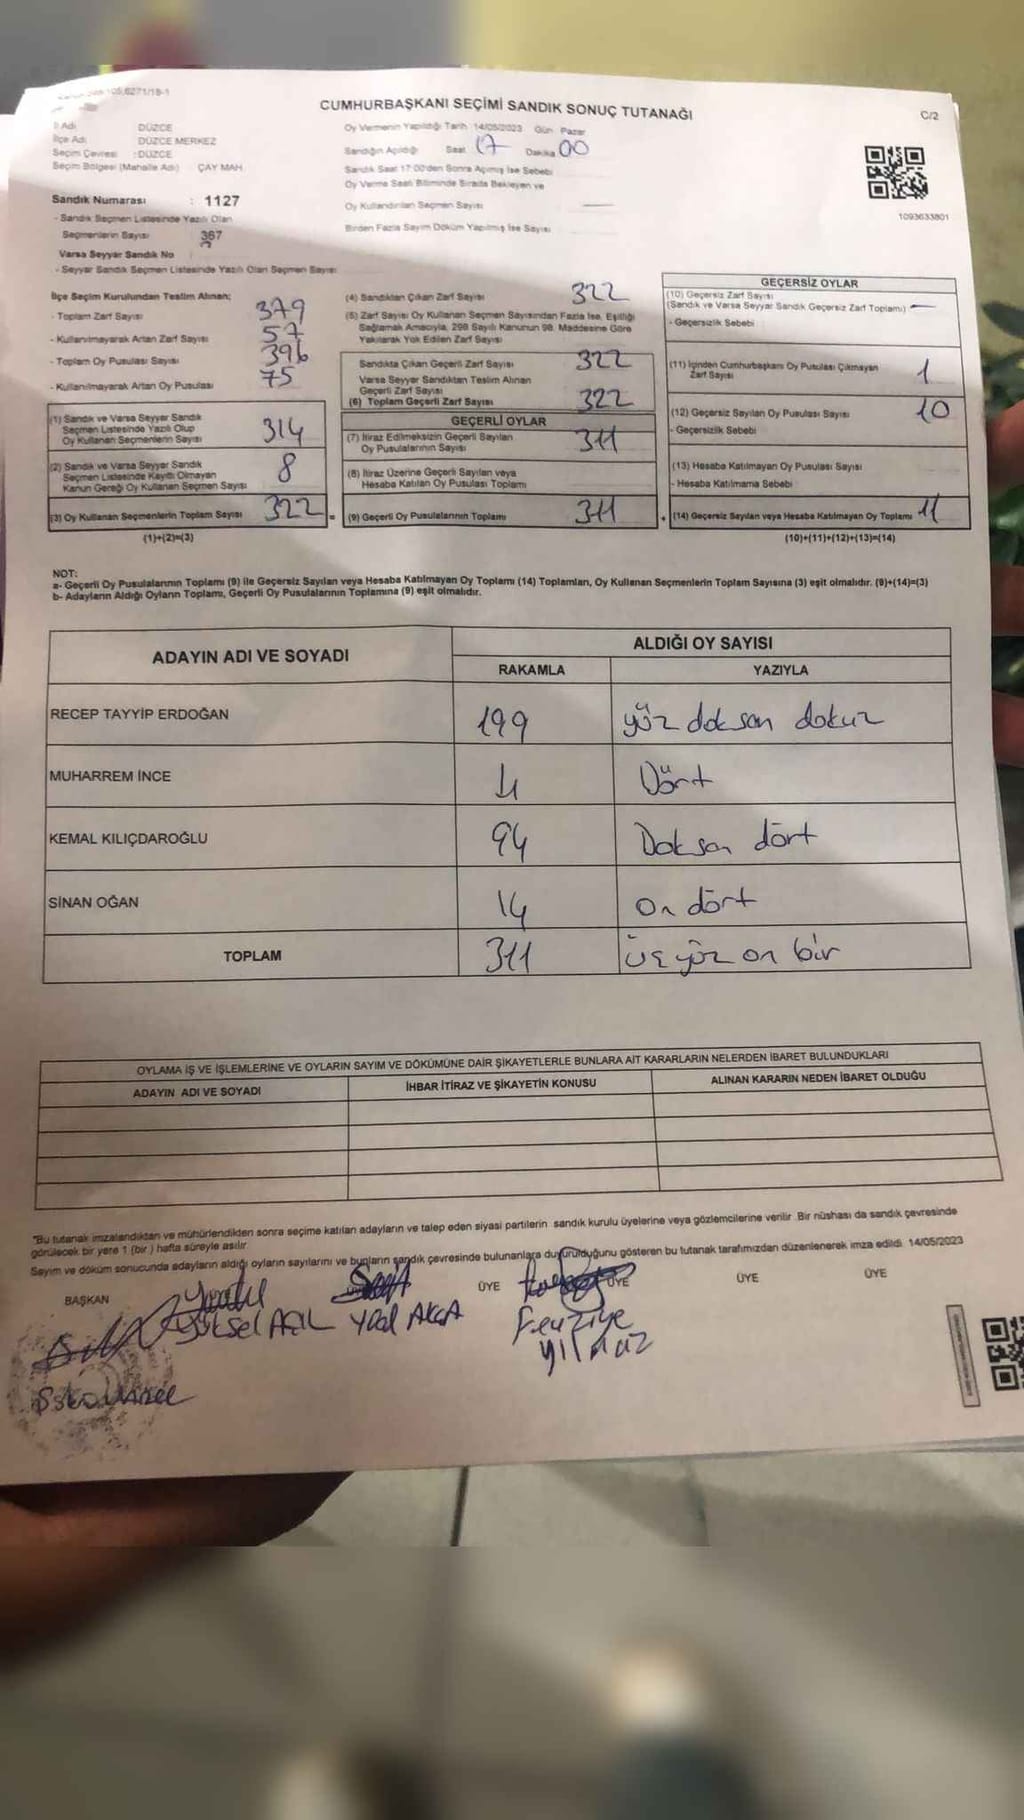 CUMHURBAŞKANI SEÇİMİ SANDIK SONUÇ TUTANAĞI
C/2
İl Adı DÜZCE
İlçe Adı DÜZCE MERKEZ
Seçim Çevresi : DÜZCE
Seçim Bölgesi (Mahalle Adı) ÇAY MAH.
Oy Vermenin Yapıldığı Tarih 14/05/2023 Gün Pazar
Sandığın Açıldığı Saat 17 Dakika 00
Sandık Saat 17:00'den Sonra Açılmış İse Sebebi
Oy Verme Saati Bitiminde Sırada Bekleyen ve
Oy Kullandırılan Seçmen Sayısı
Birden Fazla Sayım Döküm Yapılmış İse Sayısı
1093633801
Sandık Numarası : 1127
- Sandık Seçmen Listesinde Yazılı Olan
Seçmenlerin Sayısı 367
Varsa Seyyar Sandık No
- Seyyar Sandık Seçmen Listesinde Yazılı Olan Seçmen Sayısı
İlçe Seçim Kurulundan Teslim Alınan:
- Toplam Zarf Sayısı 379
- Kullanılmayarak Artan Zarf Sayısı 57
- Toplam Oy Pusulası Sayısı 396
- Kullanılmayarak Artan Oy Pusulası 75
(1) Sandık ve Varsa Seyyar Sandık
Seçmen Listesinde Yazılı Olup
Oy Kullanan Seçmenlerin Sayısı 314
(2) Sandık ve Varsa Seyyar Sandık
Seçmen Listesinde Kayıtlı Olmayan
Kanun Gereği Oy Kullanan Seçmen Sayısı 8
(3) Oy Kullanan Seçmenlerin Toplam Sayısı 322
(1)+(2)=(3)
(4) Sandıktan Çıkan Zarf Sayısı 322
(5) Zarf Sayısı Oy Kullanan Seçmen Sayısından Fazla İse, Eşitliği
Sağlamak Amacıyla, 298 Sayılı Kanunun 98. Maddesine Göre
Yakılarak Yok Edilen Zarf Sayısı
Sandıkta Çıkan Geçerli Zarf Sayısı 322
Varsa Seyyar Sandıktan Teslim Alınan
Geçerli Zarf Sayısı
(6) Toplam Geçerli Zarf Sayısı 322
GEÇERLİ OYLAR
(7) İtiraz Edilmeksizin Geçerli Sayılan
Oy Pusulalarının Sayısı 311
(8) İtiraz Üzerine Geçerli Sayılan veya
Hesaba Katılan Oy Pusulası Toplamı
= (9) Geçerli Oy Pusulalarının Toplamı 311
GEÇERSİZ OYLAR
(10) Geçersiz Zarf Sayısı
(Sandık ve Varsa Seyyar Sandık Geçersiz Zarf Toplamı)
- Geçersizlik Sebebi
(11) İçinden Cumhurbaşkanı Oy Pusulası Çıkmayan
Zarf Sayısı 1
(12) Geçersiz Sayılan Oy Pusulası Sayısı 10
- Geçersizlik Sebebi
(13) Hesaba Katılmayan Oy Pusulası Sayısı
- Hesaba Katılmama Sebebi
+ (14) Geçersiz Sayılan veya Hesaba Katılmayan Oy Toplamı 11
(10)+(11)+(12)+(13)=(14)
NOT:
a- Geçerli Oy Pusulalarının Toplamı (9) ile Geçersiz Sayılan veya Hesaba Katılmayan Oy Toplamı (14) Toplamları, Oy Kullanan Seçmenlerin Toplam Sayısına (3) eşit olmalıdır. (9)+(14)=(3)
b- Adayların Aldığı Oyların Toplamı, Geçerli Oy Pusulalarının Toplamına (9) eşit olmalıdır.
ADAYIN ADI VE SOYADI ALDIĞI OY SAYISI
RAKAMLA YAZIYLA
RECEP TAYYİP ERDOĞAN 199 yüz doksan dokuz
MUHARREM İNCE 4 Dört
KEMAL KILIÇDAROĞLU 94 Doksan dört
SİNAN OĞAN 14 on dört
TOPLAM 311 üçyüz on bir
OYLAMA İŞ VE İŞLEMLERİNE VE OYLARIN SAYIM VE DÖKÜMÜNE DAİR ŞİKAYETLERLE BUNLARA AİT KARARLARIN NELERDEN İBARET BULUNDUKLARI
ADAYIN ADI VE SOYADI İHBAR İTİRAZ VE ŞİKAYETİN KONUSU ALINAN KARARIN NEDEN İBARET OLDUĞU
"Bu tutanak imzalandıktan ve mühürlendikten sonra seçime katılan adayların ve talep eden siyasi partilerin sandık kurulu üyelerine veya gözlemcilerine verilir. Bir nüshası da sandık çevresinde
görülecek bir yere 1 (bir ) hafta süreyle asılır.
Sayım ve döküm sonucunda adayların aldığı oyların sayılarını ve bunların sandık çevresinde bulunanlara duyurulduğunu gösteren bu tutanak tarafımızdan düzenlenerek imza edildi. 14/05/2023
BAŞKAN ÜYE ÜYE ÜYE ÜYE
Yüksel AÇIL
Feuziye
yılmaz